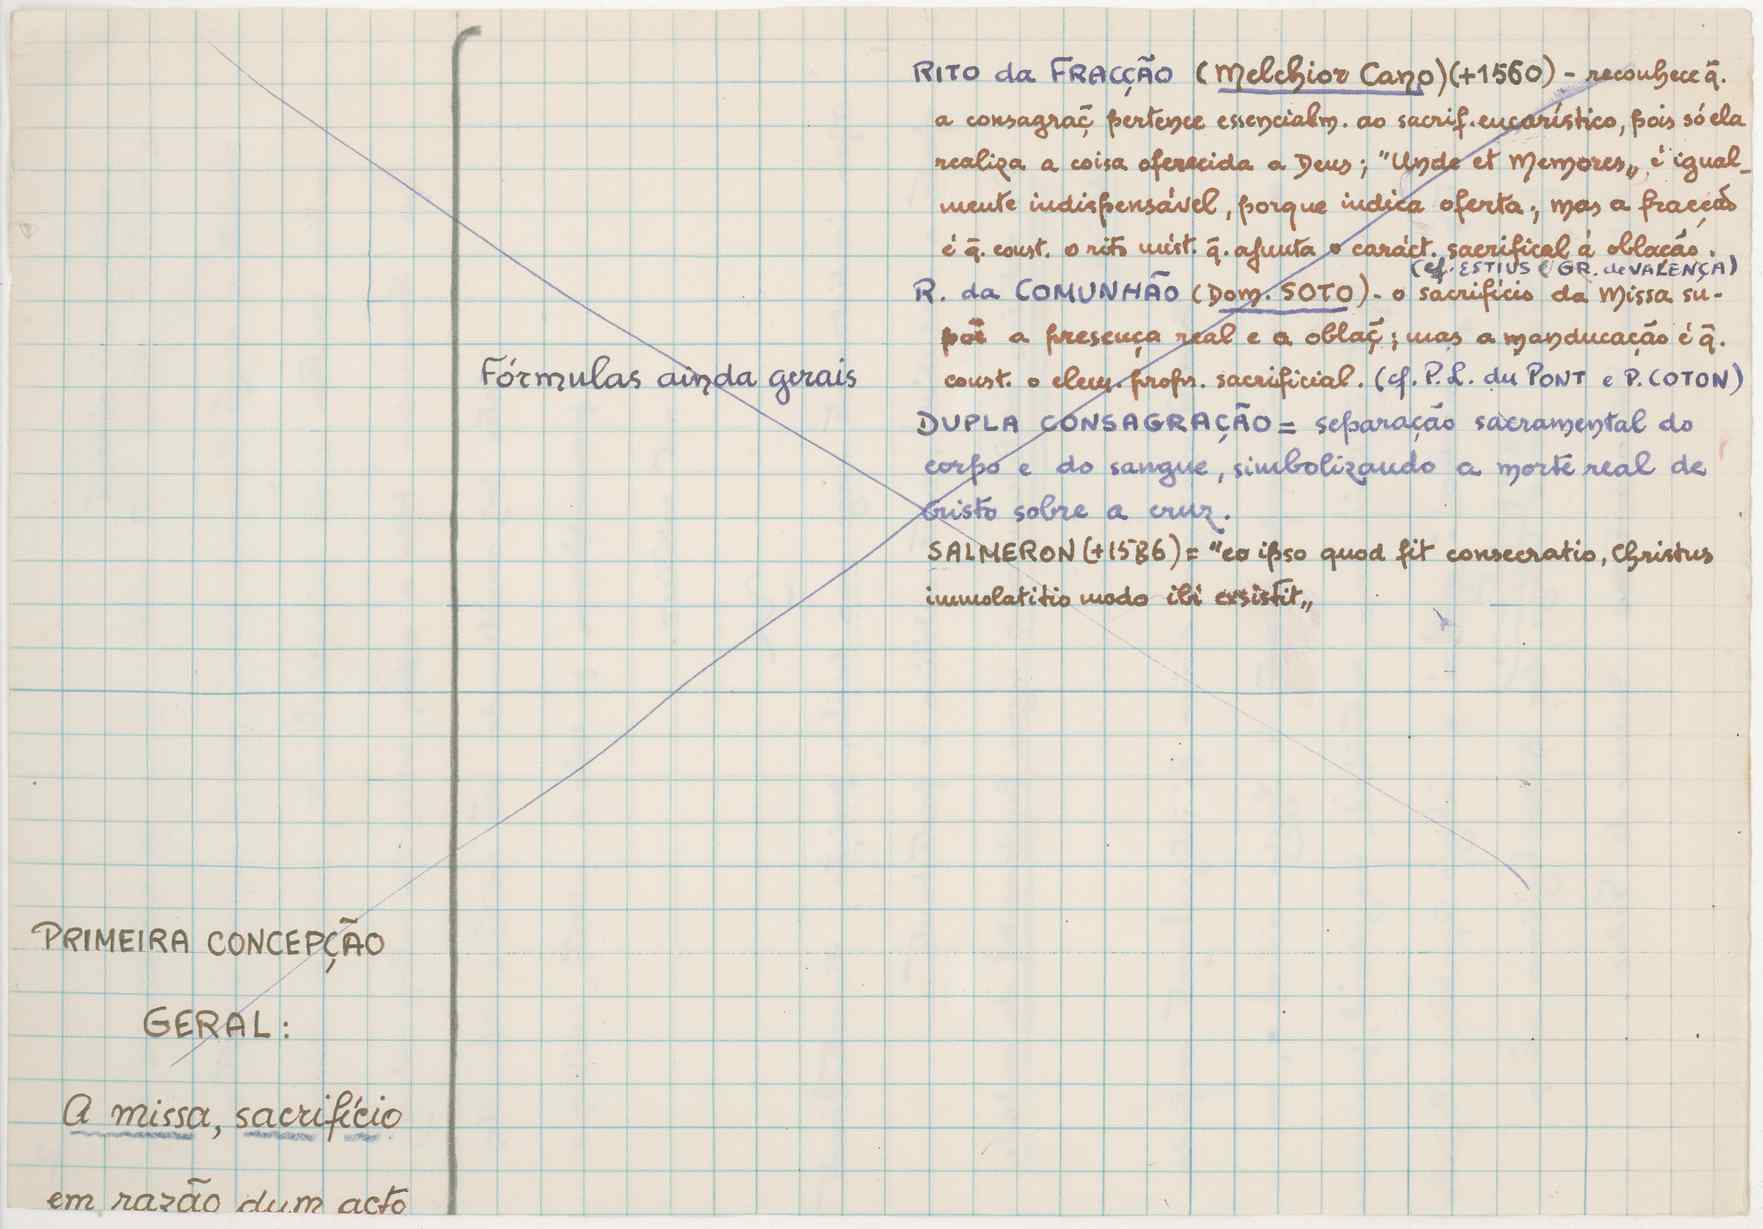 RITO da FRACÇÃO (Melchior Cano) (+1560) - reconhece q̃.
a consagraç̃ pertence essencialm. ao sacrif. eucarístico, pois só ela
realiza a coisa oferecida a Deus; "Unde et Memores„, é igual-
mente indispensável, porque indica oferta; mas a fracção
é q̃. const. o rito míst. q̃. ajunta o caráct. sacrifical à oblação.
(cf. ESTIUS e GR. de VALENÇA)
R. da COMUNHÃO (Dom. SOTO) - o sacrifício da Missa su-
põe a presença real e a oblaç̃; mas a manducação é q̃.
const. o elem. propr. sacrificial. (cf. P.L. du PONT e P. COTON)
Fórmulas ainda gerais
DUPLA CONSAGRAÇÃO = separação sacramental do
corpo e do sangue, simbolizando a morte real de
Cristo sobre a cruz.
SALMERON (+1586) = "eo ipso quod fit consecratio, Christus
immolatitio modo ibi exsistit„
PRIMEIRA CONCEPÇÃO
GERAL:
A missa, sacrifício
em razão dum acto